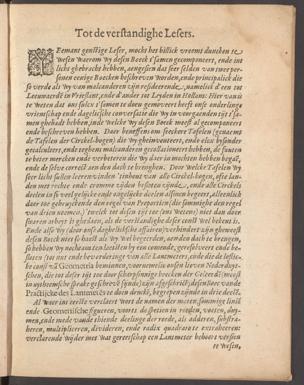 Tot de verstandighe Lesers.
Eemant gonstige Leser, mocht het billick vreemt duncken te
wesen waerom wy desen Boeck t'samen gecomponeert, ende int
licht ghebracht hebben, aengesien dat seer selden van twee per-
soonen eenige Boecken beschreven worden, ende principalick die
so verde als wy van malcanderen zijn residerende, namelick d'een tot
Leeuwarden in Vrieslant, ende d'ander tot Leyden in Hollant: Hier van is
te weten dat ons sulcx t'samen te doen gemoveert heeft onse onderlinge
vrientschap ende dagelicsche conversatie die wy in voorgaenden tijt t'sa-
men gehadt hebben, inde Welcke wy desen Boeck meest al gecomponeert
ende beschreven hebben. Daer beneffens ons seeckere Tafelen (genaemt
de Tafelen der Circkel-bogen) die wy ghebruyckten, ende elcx bysonder
gecalculeert, ende teghens malcanderen gecollationeert hebben, de fauten
te beter mercken ende verbeteren die wy daer in mochten hebben begaen,
ende de selve correct aen den dach te brenghen. Door welcke Tafelen wy
seer lichtelijck leeren vinden t'inhout van alle Circkel-bogen, ofte lan-
den met rechte ende cromme zijden besloten zijnde, ende alle Circkels
deelen in so veel gelijcke ende ongelijcke deelen alsmen begeert, alleenlick
door toe gebruyckende den regel van Proportien, (die sommighe den regel
van drien noemen,) 'twelck tot desen tijt toe (ons wetens) niet dan door
swaren arbeyt is ghedaen, als de verstandighe deser const wel bekent is.
Ende also wy (door onse daghelicksche affairen) verhindert zijn gheweest
desen Boeck niet so haest als wy wel begeerden, aen den dach te brengen,
so hebben wy nochtans ten lesten by een comende, geresolveert ende be-
slaten (tot nut ende bevorderinge van alle Lantmeters, ende die de lofflic-
ke const vā Geometria beminnen, voornemelic onsen lieven Nederduyt-
schen, die tot desen tijt toe door scharpsinnige boecken der Geleerde (meest
in uytheemsche sprake geschreven zijnde) zijn afgeschrict) desen Boec vande
Practijcke des Lantmetēs te doen drucken, begrepen zijnde in drie deelē.
Al waer int eerste verclaert wort de namen der meten, sommige linien
ende Geometrische figueren, voorts de specien in roeden, voeten, duy-
men, ende mede vande thiende deelinge der roede, als adderen, substra-
heren, multipliceren, divideren, ende radix quadrate extraheeren:
verclarende wijder met wat gereetschap een Lantmeter behoort versien
te wesen,